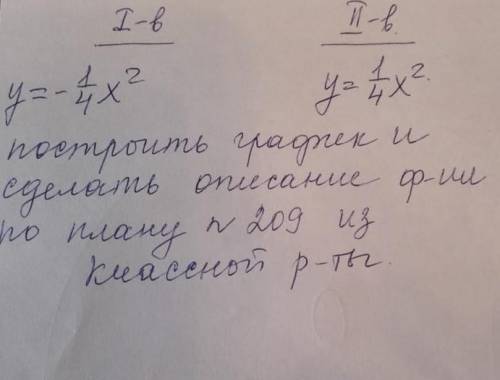 I-в II-в.
y = -1/4 x² y = 1/4 x².
построить график и
сделать описание ф-ии
по плану № 209 из
классной р-ты.